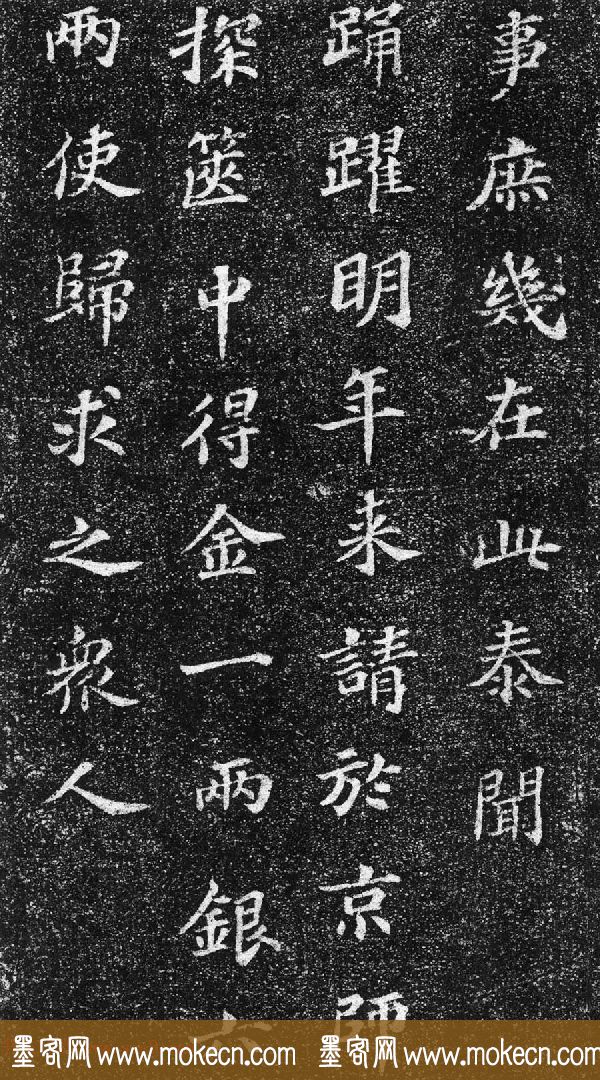 事庶幾在此泰聞
踊躍明年来請於京師
探篋中得金一兩銀
兩使歸求之衆人
墨客网 www.mokecn.com 墨客网 www.mokecn.com